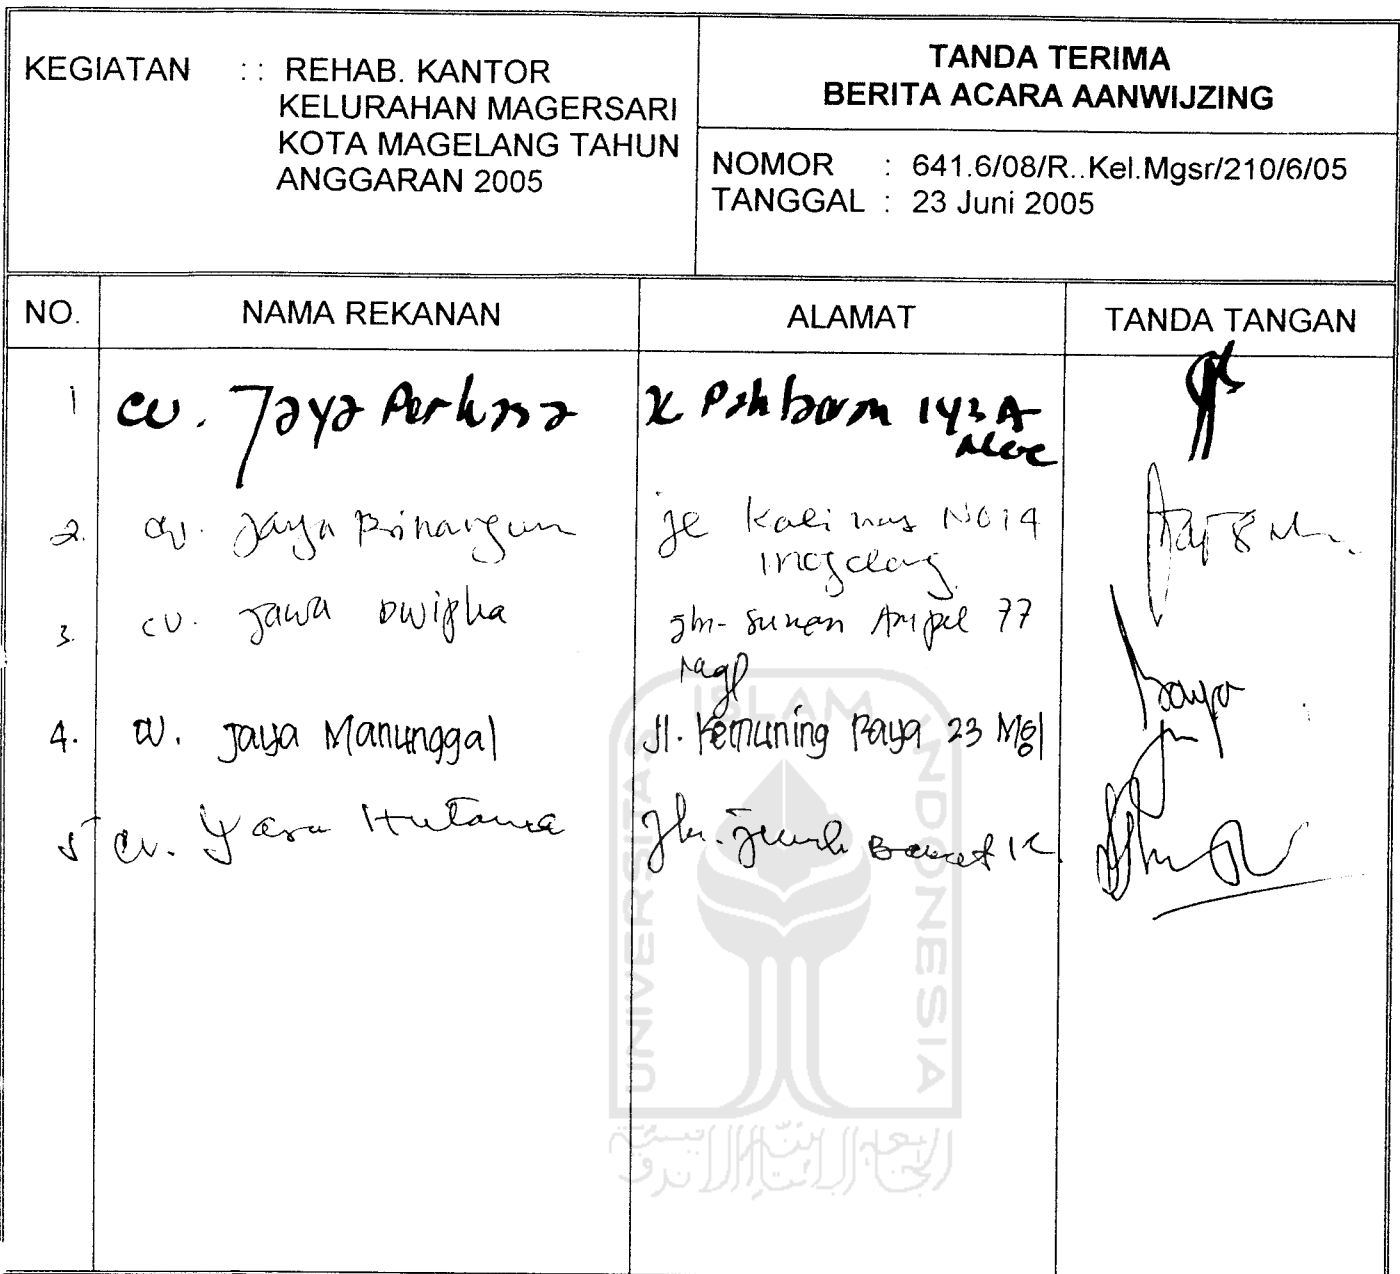 KEGIATAN : : REHAB. KANTOR
KELURAHAN MAGERSARI
KOTA MAGELANG TAHUN
ANGGARAN 2005
TANDA TERIMA
BERITA ACARA AANWIJZING
NOMOR : 641.6/08/R..Kel.Mgsr/210/6/05
TANGGAL : 23 Juni 2005
NO. NAMA REKANAN ALAMAT TANDA TANGAN
1 CV. Jaya Perkasa 143 A
2. CV. Jaya Binangun Jl Kali No 14
3. CV. Jawa Dwipha Jln. Sunan Ampel 77
Magl
4. CV. Jaya Manunggal Jl. Kemuning Raya 23 Mgl
5 CV. Yasa Hutama Jln.
UNIVERSITAS ISLAM INDONESIA